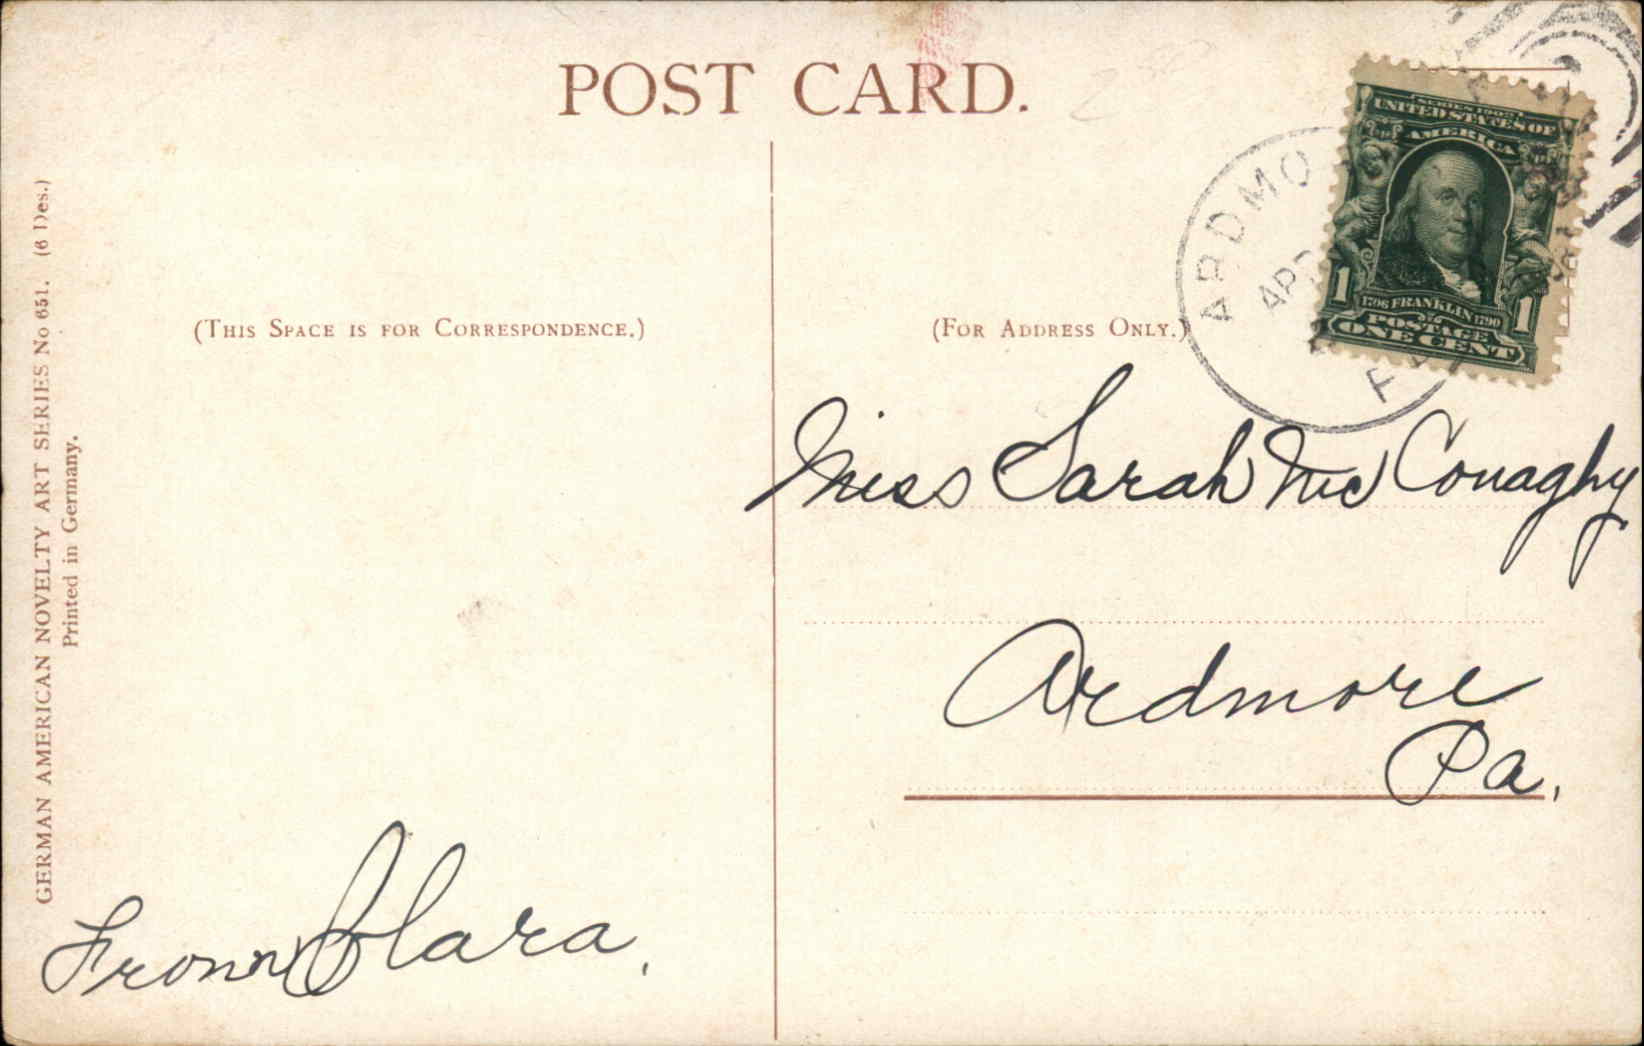 POST CARD.
(THIS SPACE IS FOR CORRESPONDENCE.)
(FOR ADDRESS ONLY.)
GERMAN AMERICAN NOVELTY ART SERIES No 651. (6 Des.)
Printed in Germany.
SERIES 1902
UNITED STATES OF
AMERICA
1 1
1706 FRANKLIN 1790
POSTAGE
ONE CENT
ARDMO
AP
Miss Sarah McConaghy
Ardmore
Pa.
From Clara.